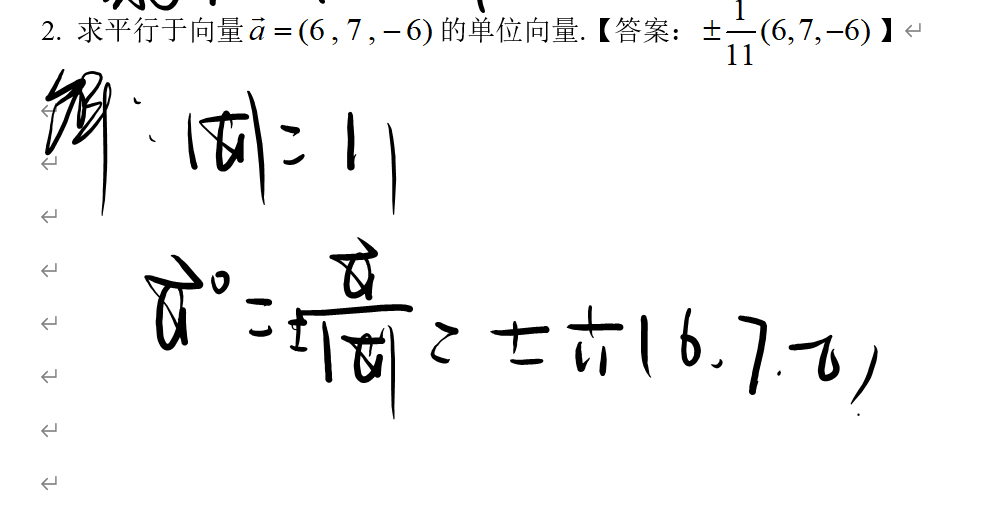 2. 求平行于向量 a⃗ = (6 , 7 , − 6) 的单位向量.【答案： ± 1/11 (6,7,−6) 】
解：|a⃗| = 11
a⃗⁰ = ± a⃗/|a⃗| = ± 1/11 (6, 7, -6)